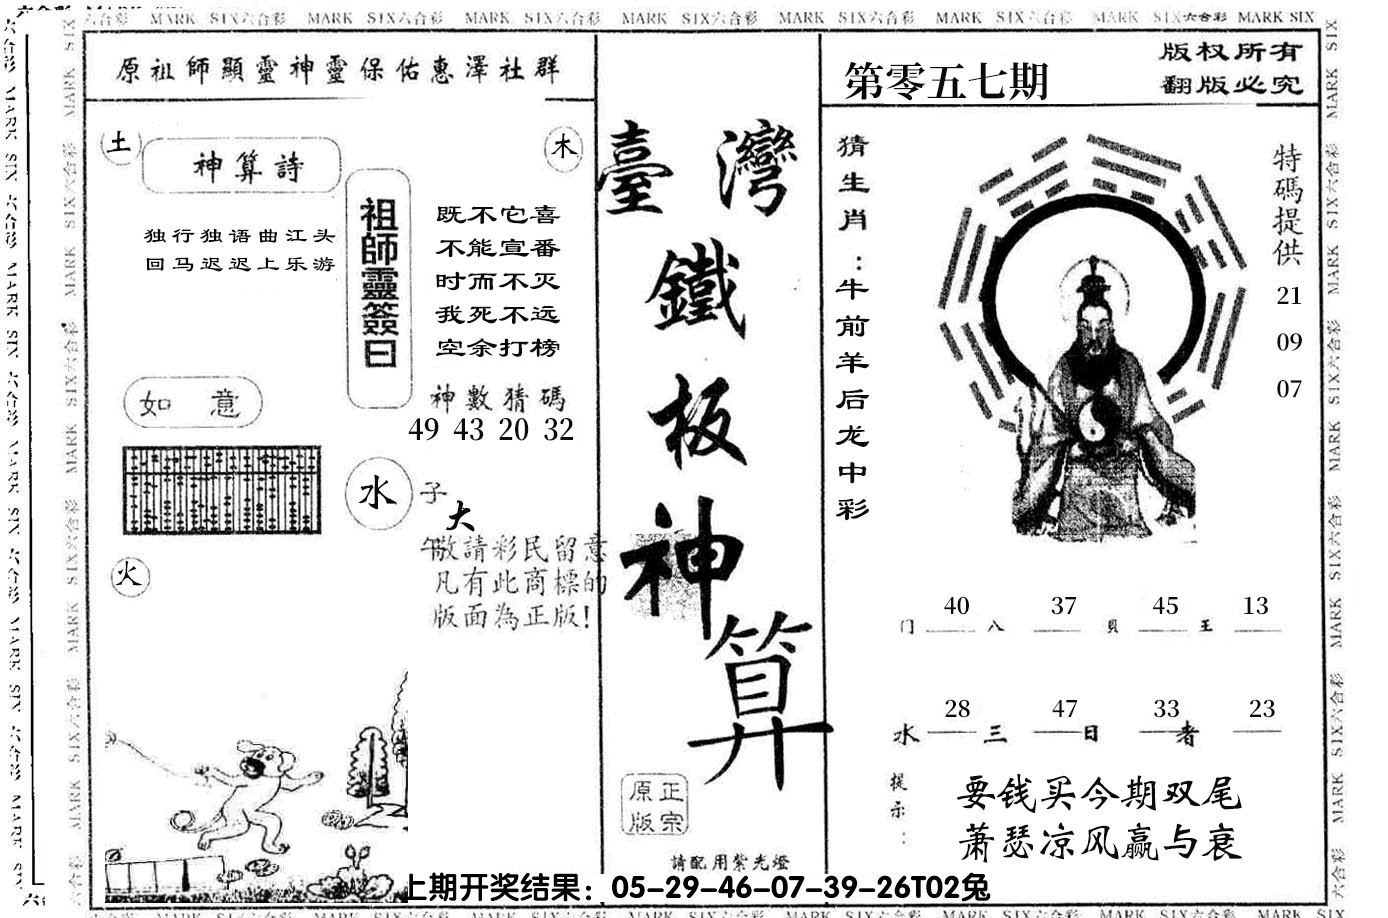 六合彩 MARK SIX六合彩 MARK SIX六合彩 MARK SIX六合彩 MARK SIX六合彩 MARK SIX六合彩 MARK SIX六合彩 MARK SIX六合彩 MARK SIX
原祖師顯靈神靈保佑惠澤社群
土
神算詩
木
独行独语曲江头
回马迟迟上乐游
祖師靈簽曰
既不它喜
不能宣番
时而不灭
我死不远
空余打榜
如 意
神數猜碼
49 43 20 32
水
子
大
午
敬請彩民留意
凡有此商標的
版面為正版!
火
臺灣
鐵
板
神
算
正宗
原版
請配用紫光燈
第零五七期
版权所有
翻版必究
猜生肖:牛前羊后龙中彩
特碼提供
21
09
07
40 37 45 13
门 八 贝 王
28 47 33 23
水 三 日 者
提示:
要钱买今期双尾
萧瑟凉风赢与衰
上期开奖结果：05-29-46-07-39-26T02兔